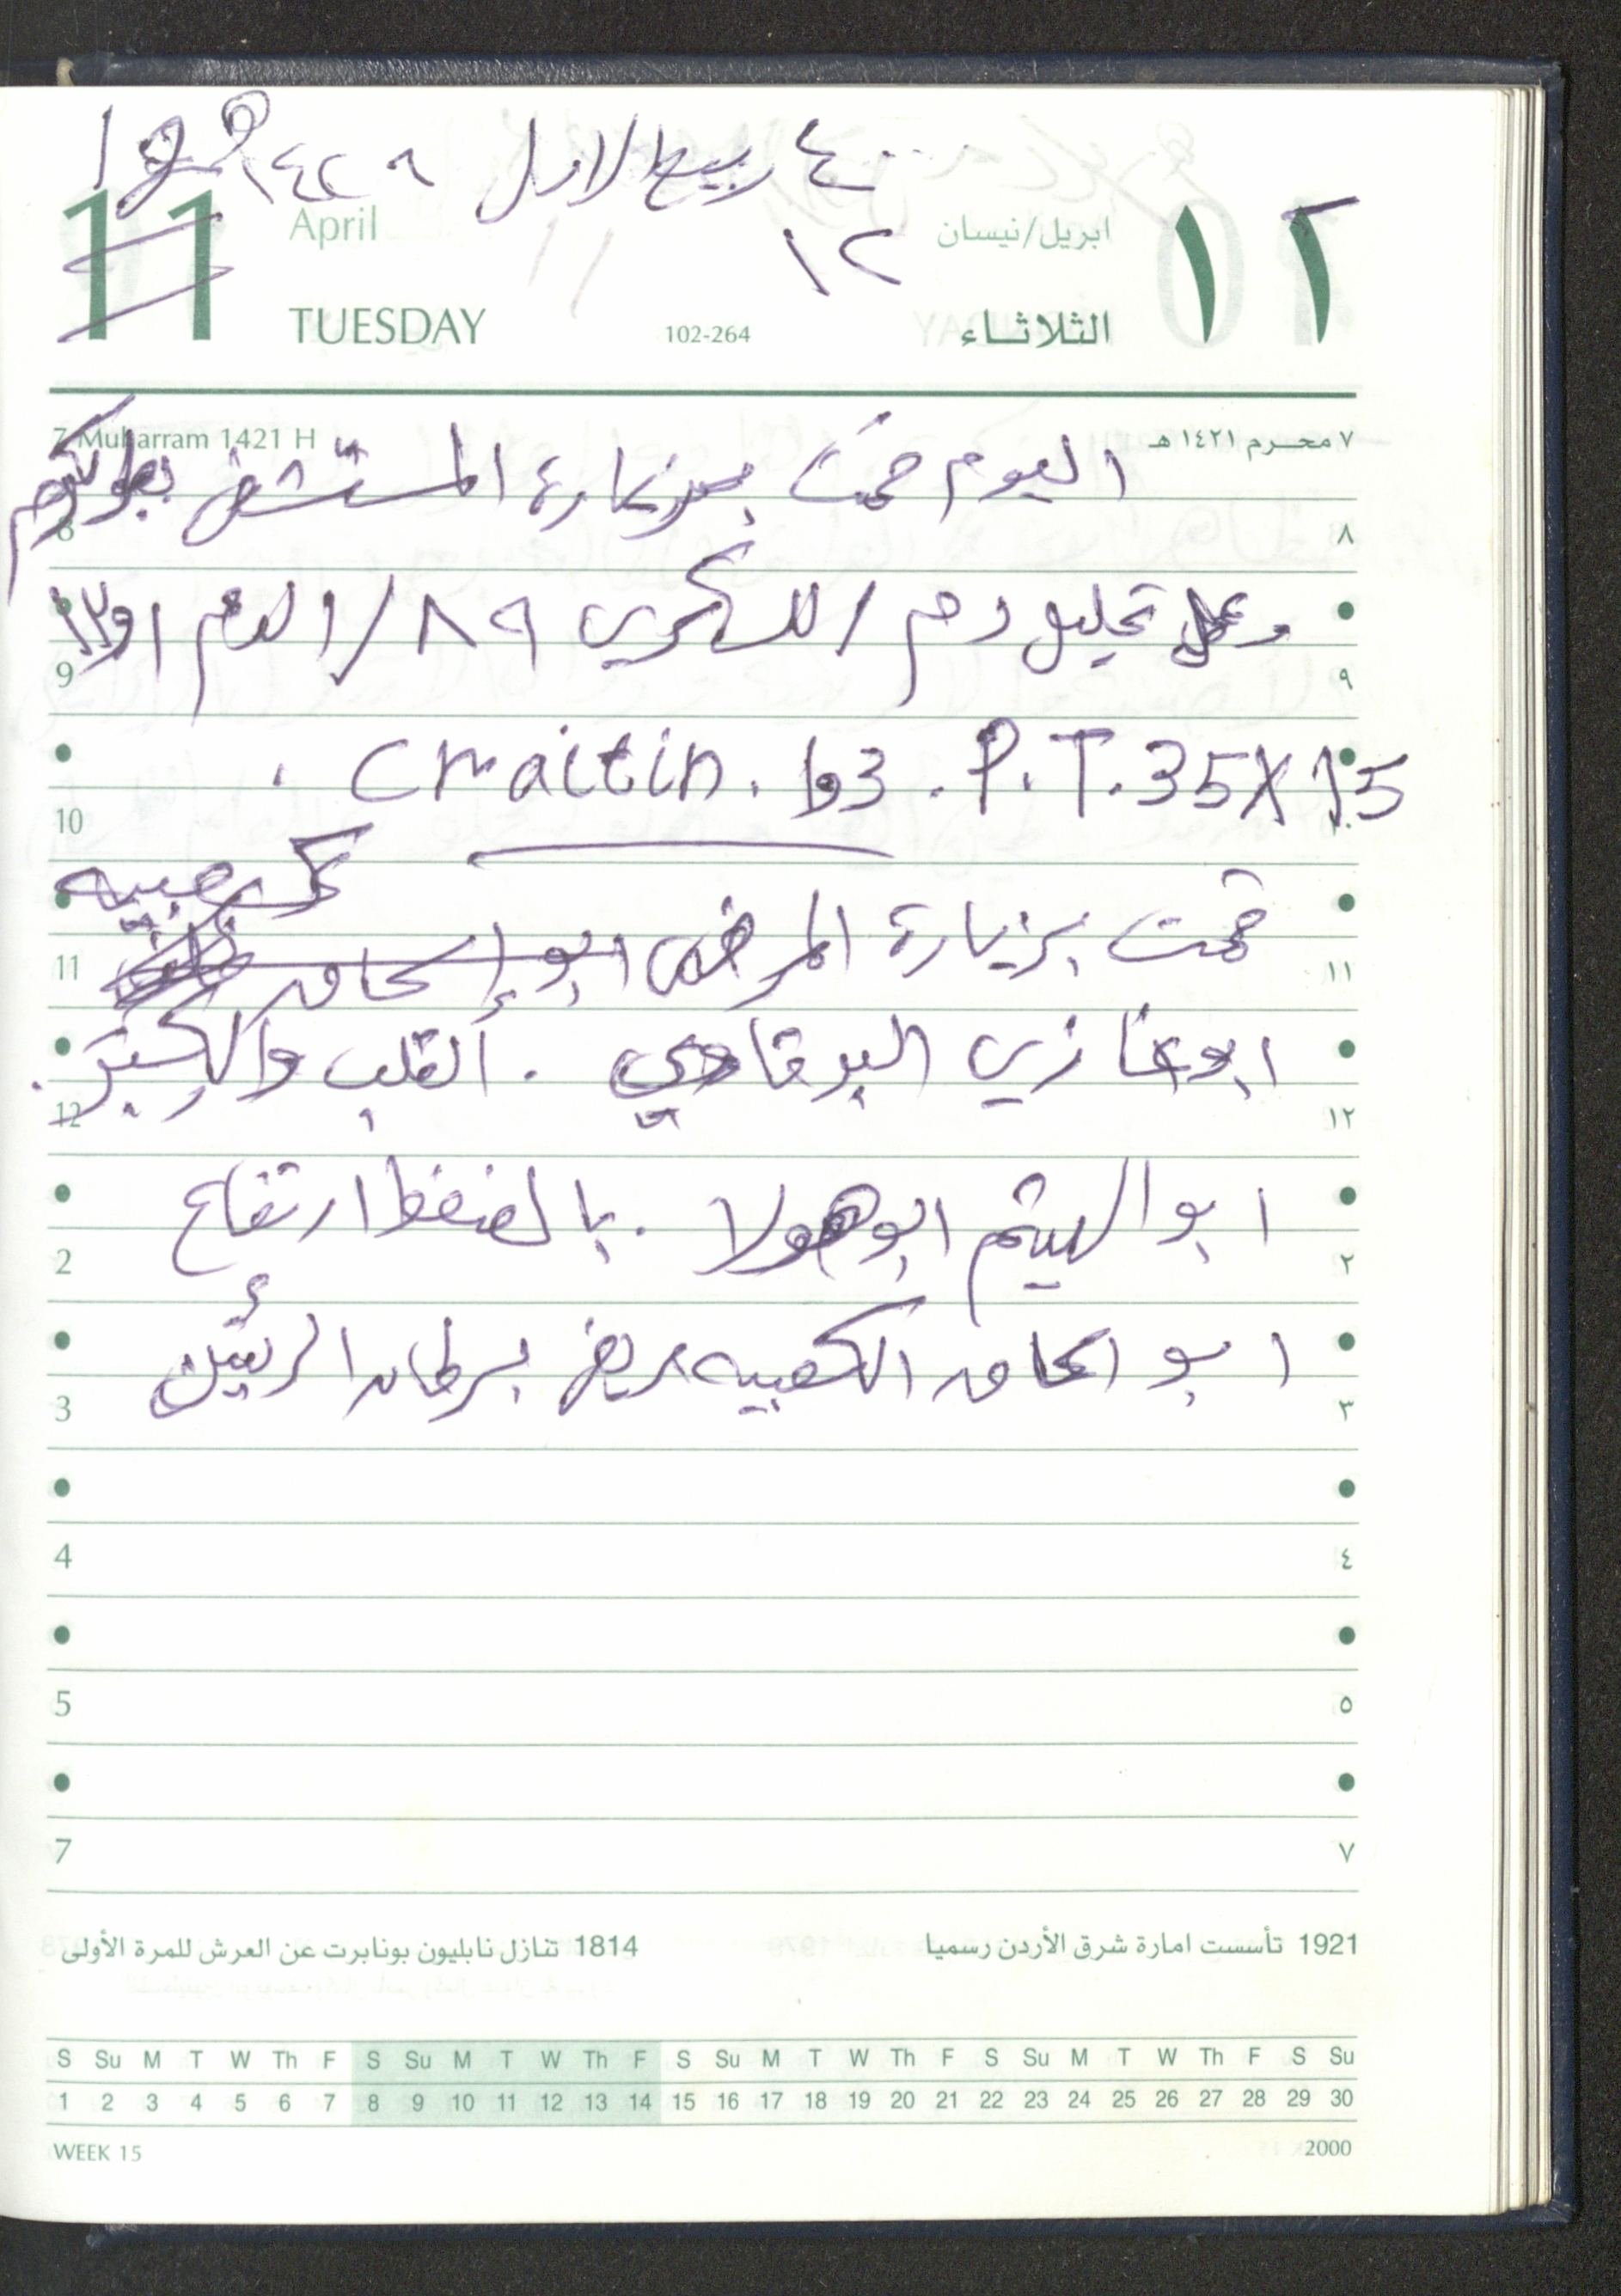 ٤ ربيع الاول ١٤٢٨ هـ
11 April ابريل/نيسان ١٢
١٢
TUESDAY 102-264 الثلاثاء
7 Muharram 1421 H ٧ محرم ١٤٢١ هـ
اليوم قمت بزيارة المستشفى بطولكرم
8 ٨
وعمل تحليل دم / للسكري ٨٩ / الدم
9 ٩
Craitin . P.T. 35 X 15
10 ١٠
كعبيه
قمت بزيارة المرضى ابو إسحاق
11 ١١
ابو غازي البرقاوي . القلب والكبر .
12 ١٢
ابو الهيثم ابو هولا . بالضغط ارتفاع
2 ٢
ابو اسحاق الكعبيه مريض بسرطان الرئتين
3 ٣
4 ٤
5 ٥
7 ٧
1921 تأسست امارة شرق الأردن رسميا 1814 تنازل نابليون بونابرت عن العرش للمرة الأولى
S Su M T W Th F S Su M T W Th F S Su M T W Th F S Su M T W Th F S Su
1 2 3 4 5 6 7 8 9 10 11 12 13 14 15 16 17 18 19 20 21 22 23 24 25 26 27 28 29 30
WEEK 15 2000